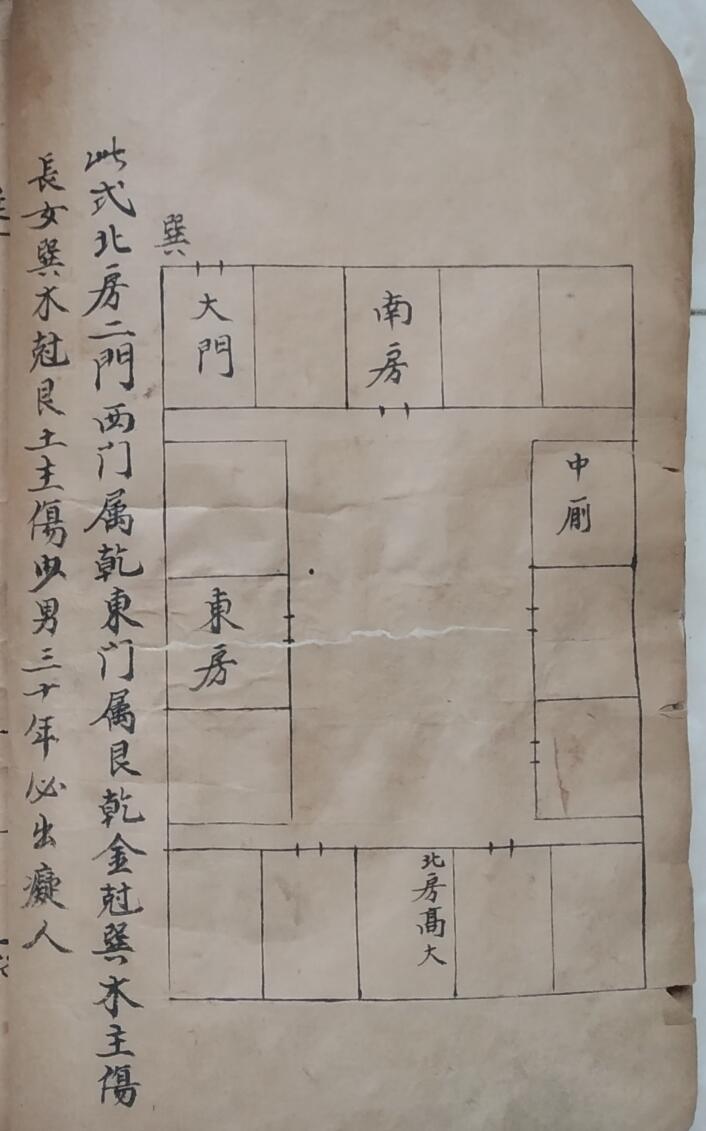 巽
大門
南房
中厠
東房
北房髙大
此式北房二門西门属乾東门属艮乾金尅巽木主傷
長女巽木尅艮土主傷少男三十年必出癡人